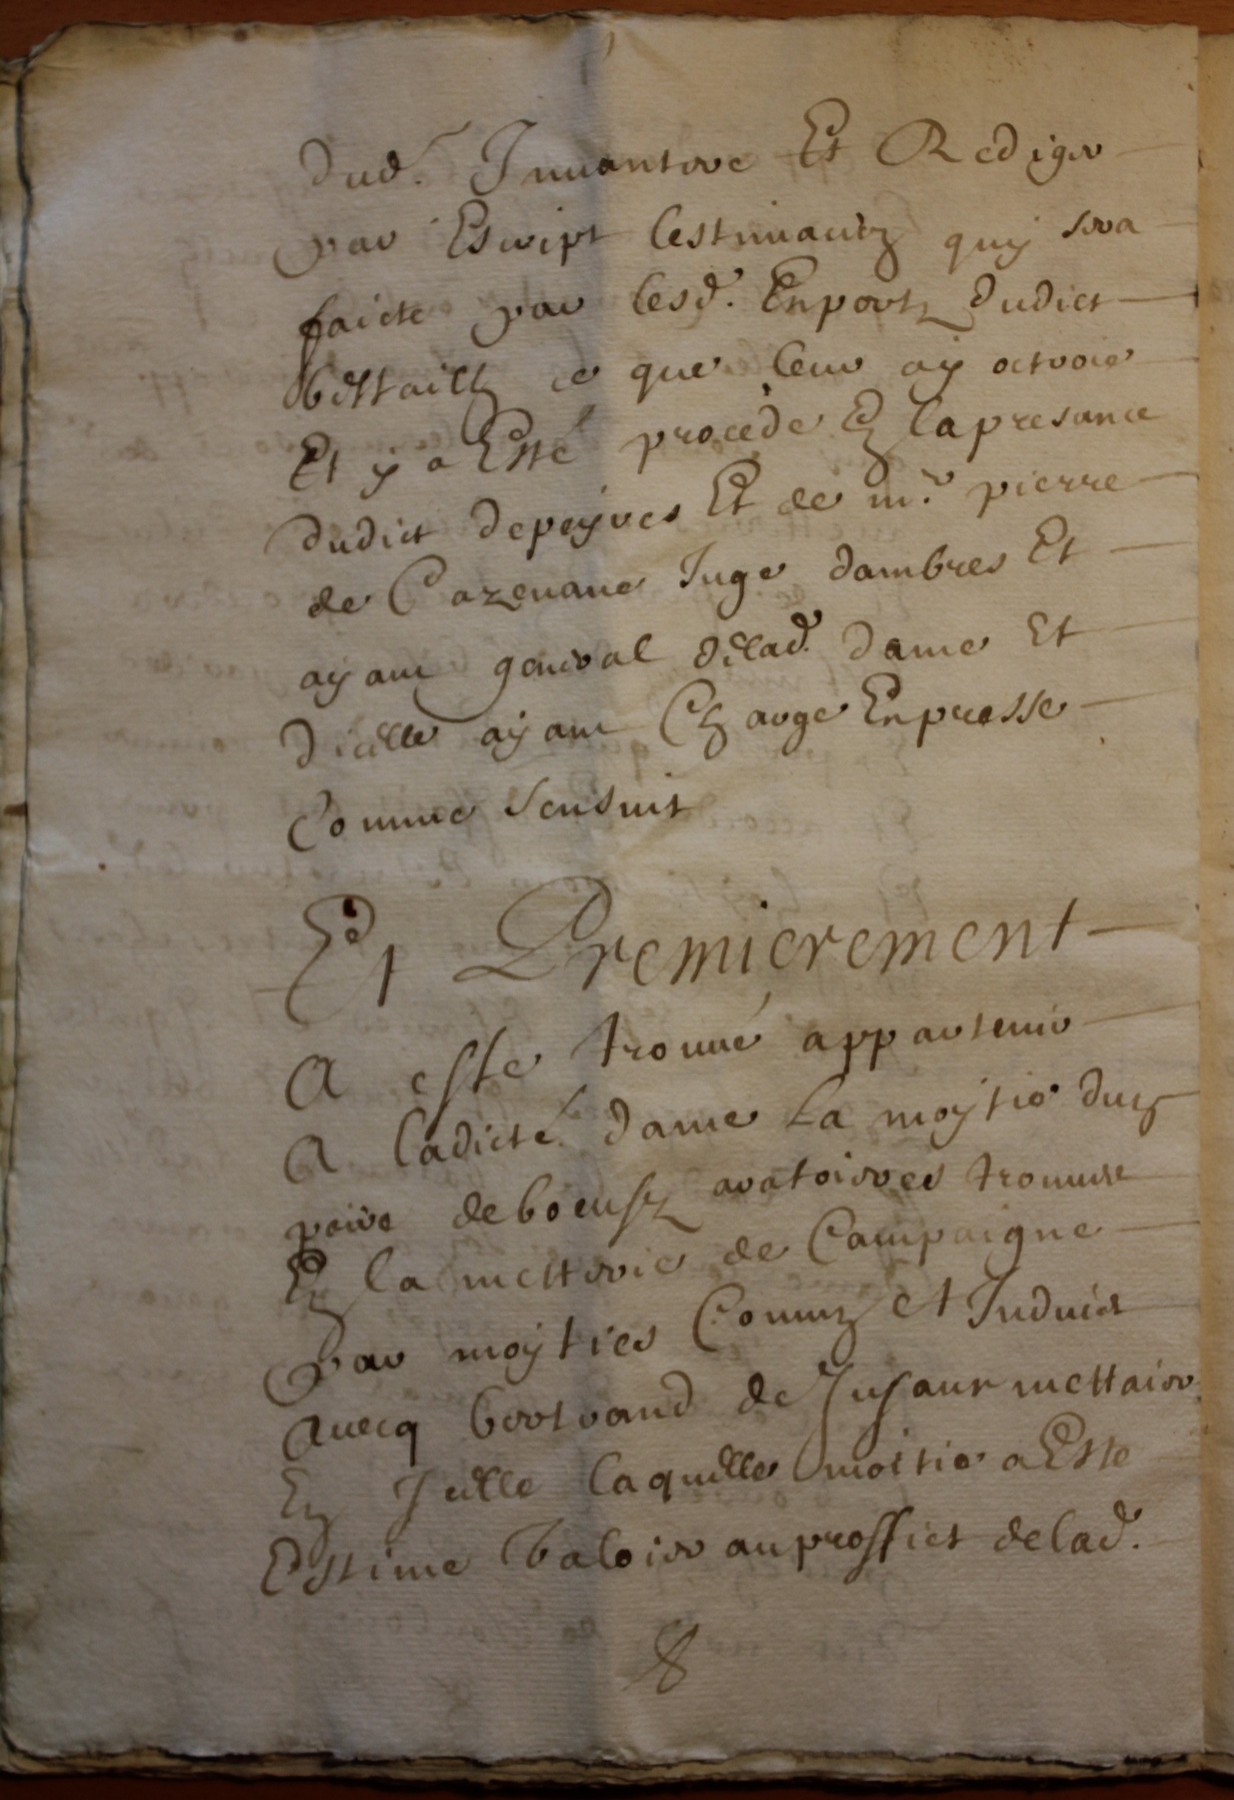 dud. Inuantere Et Rediger
par Escript lestimaon quy sera
faicte par lesd. Expertz dudict
bestailh ce que leur ay octroie
Et y a Esté procede En la presance
dudict depeyres Et de mr pierre
de Cazenaue Juge dambres Et
ayant general dellad. dame Et
dicelle ayant Charge Expresse
Comme sensuit
Et Premierement
A este trouué appartenir
A ladicte dame La moytie dun
paire de boeufz aratoires trouues
En la metterie de Campaigne
par moyties Commun et Induict
Auecq bertrand de mettaier
En Icelle laquelle moitie a Este
Estime Valoir au proffict de lad.
8